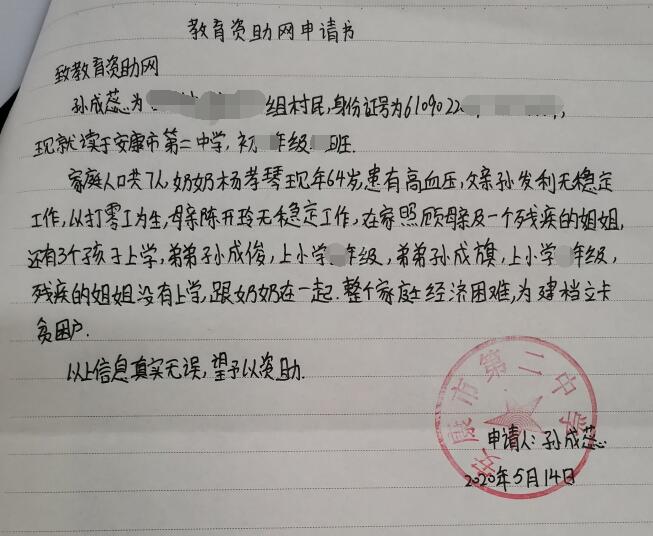 教育资助网申请书
致教育资助网
孙成蕊为 组村民,身份证号为6109022
现就读于安康市第二中学,初 年级 班.
家庭人口共7人,奶奶杨孝琴现年64岁,患有高血压,父亲孙发利无稳定
工作,以打零工为生,母亲陈开玲无稳定工作,在家照顾母亲及一个残疾的姐姐,
还有3个孩子上学,弟弟孙成俊,上小学 年级,弟弟孙成旗,上小学 年级,
残疾的姐姐没有上学,跟奶奶在一起.整个家庭经济困难,为建档立卡
贫困户.
以上信息真实无误,望予以资助.
安康市第二中学
申请人:孙成蕊
2020年5月14日